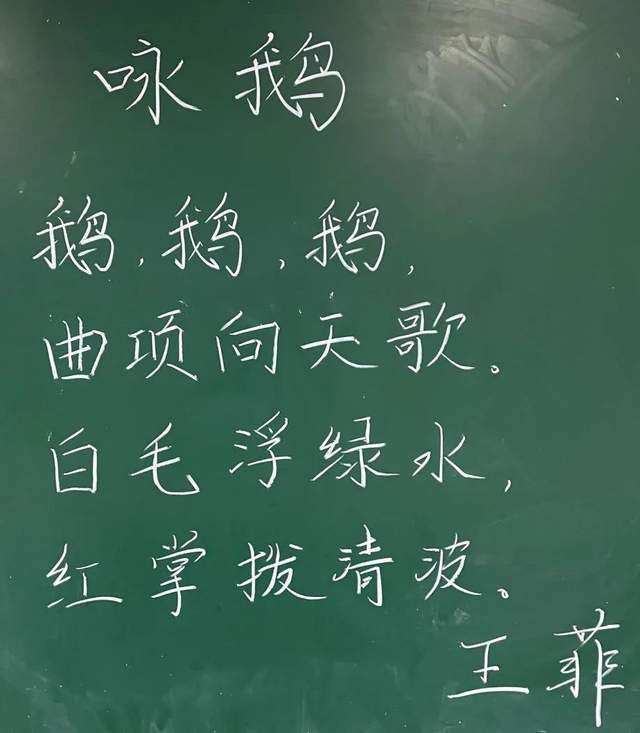 咏鹅
鹅，鹅，鹅，
曲项向天歌。
白毛浮绿水，
红掌拨清波。
王菲